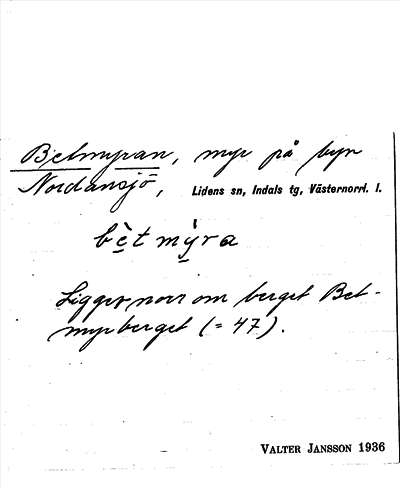 Betmyran, myr på byn
Nordansjö, Lidens sn, Indals tg, Västernorrl. l.
bè̱t mỳ̱ra
Ligger norr om berget Bet-
myrberget (= 47).
VALTER JANSSON 1936